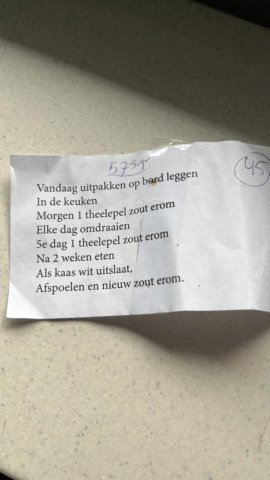 575gr
45
Vandaag uitpakken op bord leggen
In de keuken
Morgen 1 theelepel zout erom
Elke dag omdraaien
5e dag 1 theelepel zout erom
Na 2 weken eten
Als kaas wit uitslaat,
Afspoelen en nieuw zout erom.